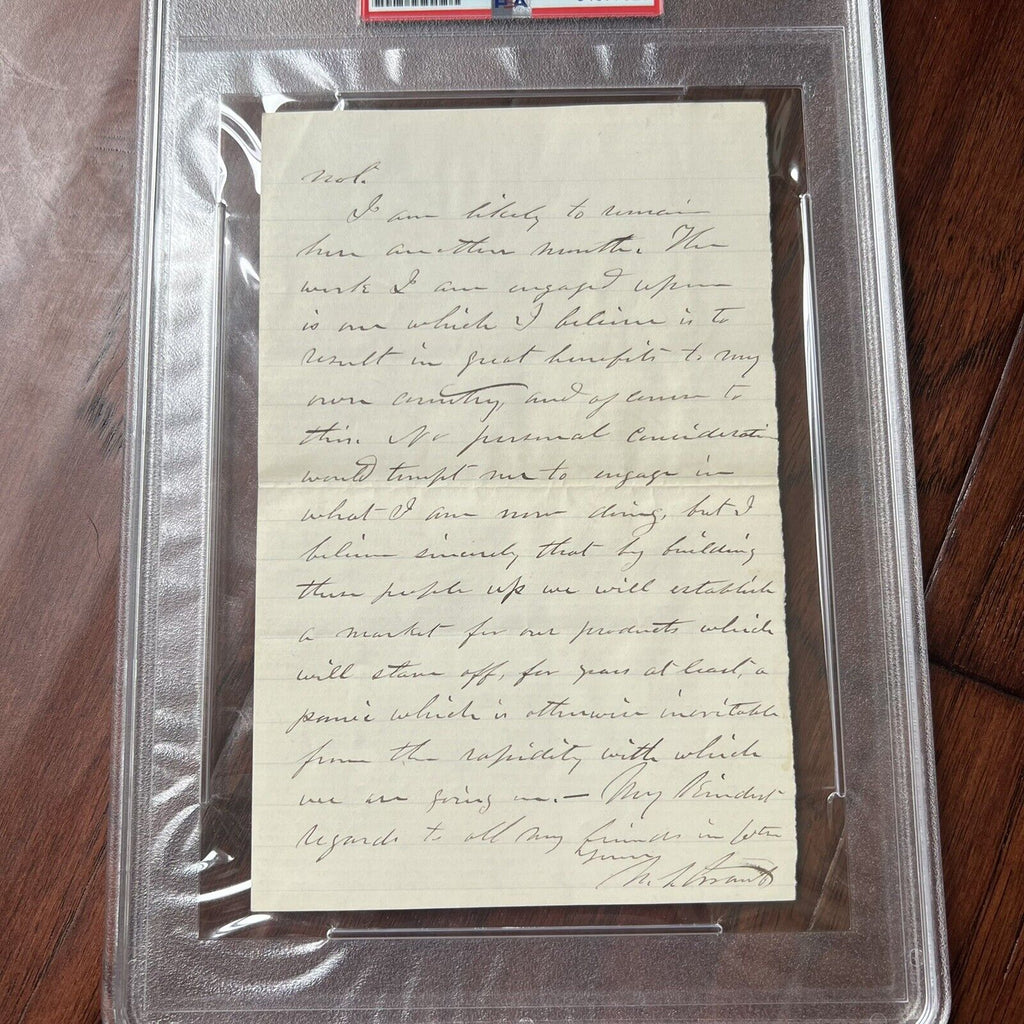 PSA
not.
I am likely to remain
here another month. The
work I am engaged upon
is one which I believe is to
result in great benefits to my
own country, and of course to
this. No personal consideration
would tempt me to engage in
what I am now doing, but I
believe sincerely that by building
these people up we will establish
a market for our products which
will stave off, for years at least, a
panic which is otherwise inevitable
from the rapidity with which
we are going on. — My Kindest
regards to all my friends in
Yours
U. S. Grant